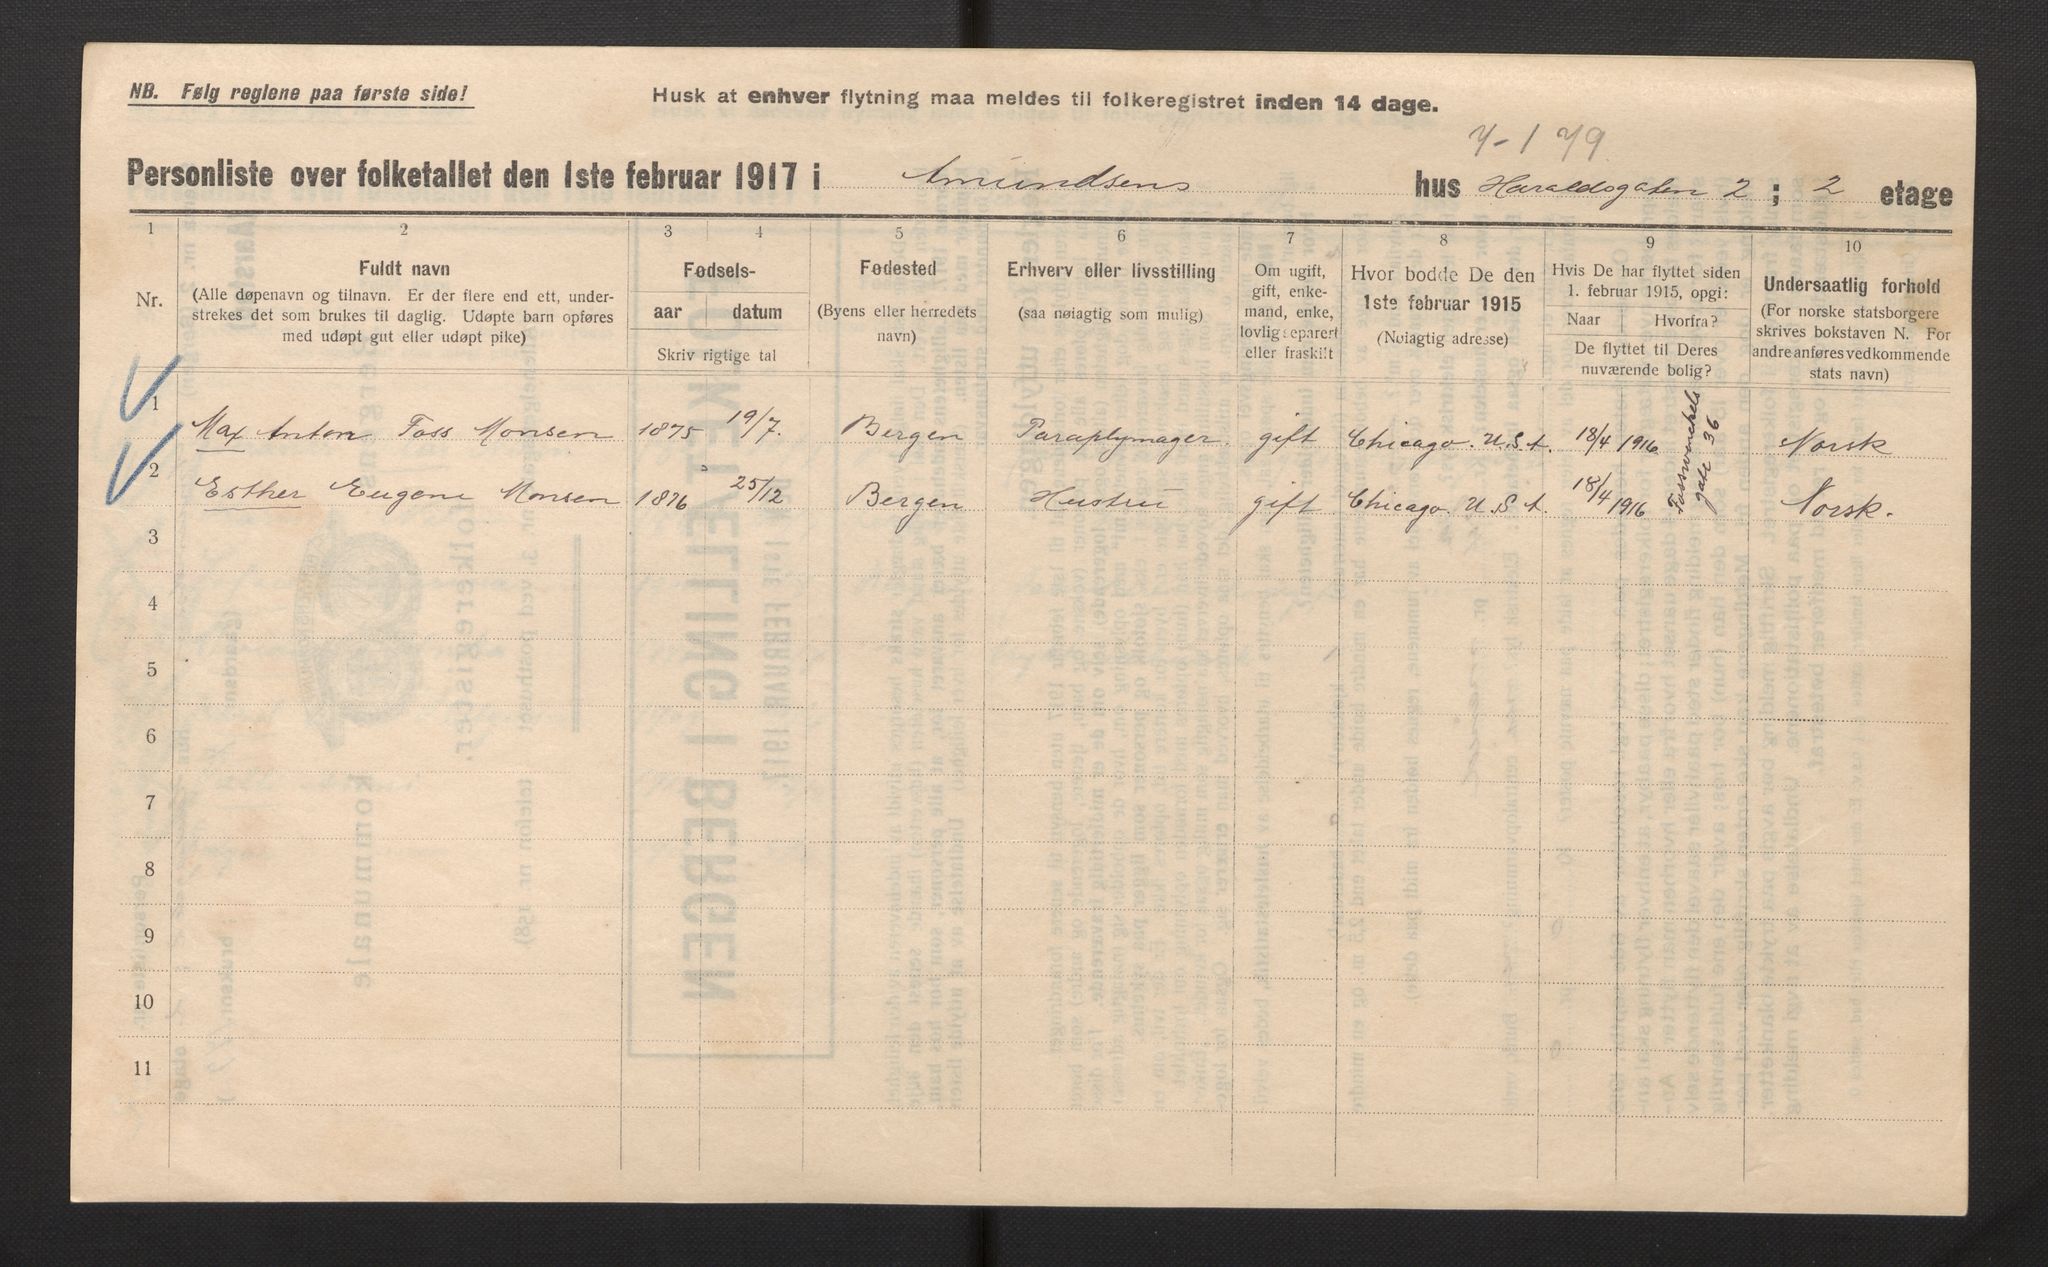 NB. Følg reglene paa første side!
Husk at enhver flytning maa meldes til folkeregistret inden 14 dage.
Personliste over folketallet den 1ste februar 1917 i Amundsens hus Haraldsgaten 2 ; 2 etage
1 2 3 4 5 6 7 8 9 10
Nr.
Fuldt navn
(Alle døpenavn og tilnavn. Er der flere end ett, under-
strekes det som brukes til daglig. Udøpte barn opføres
med udøpt gut eller udøpt pike)
Fødsels-
aar datum
Skriv rigtige tal
Fødested
(Byens eller herredets
navn)
Erhverv eller livsstilling
(saa nøiagtig som mulig)
Om ugift,
gift, enke-
mand, enke,
lovlig separert
eller fraskilt
Hvor bodde De den
1ste februar 1915
(Nøiagtig adresse)
Hvis De har flyttet siden
1. februar 1915, opgi:
Naar Hvorfra?
De flyttet til Deres
nuværende bolig?
Undersaatlig forhold
(For norske statsborgere
skrives bokstaven N. For
andre anføres vedkommende
stats navn)
1 Max Anton Foss Monsen 1875 19/7. Bergen Paraplymager. gift Chicago. U.S.A. 18/4 1916 Norsk
2 Esther Eugenie Monsen 1876 25/12 Bergen Hustru gift Chicago. U.S.A. 18/4 1916 gate 36 Norsk.
3
4
5
6
7
8
9
10
11